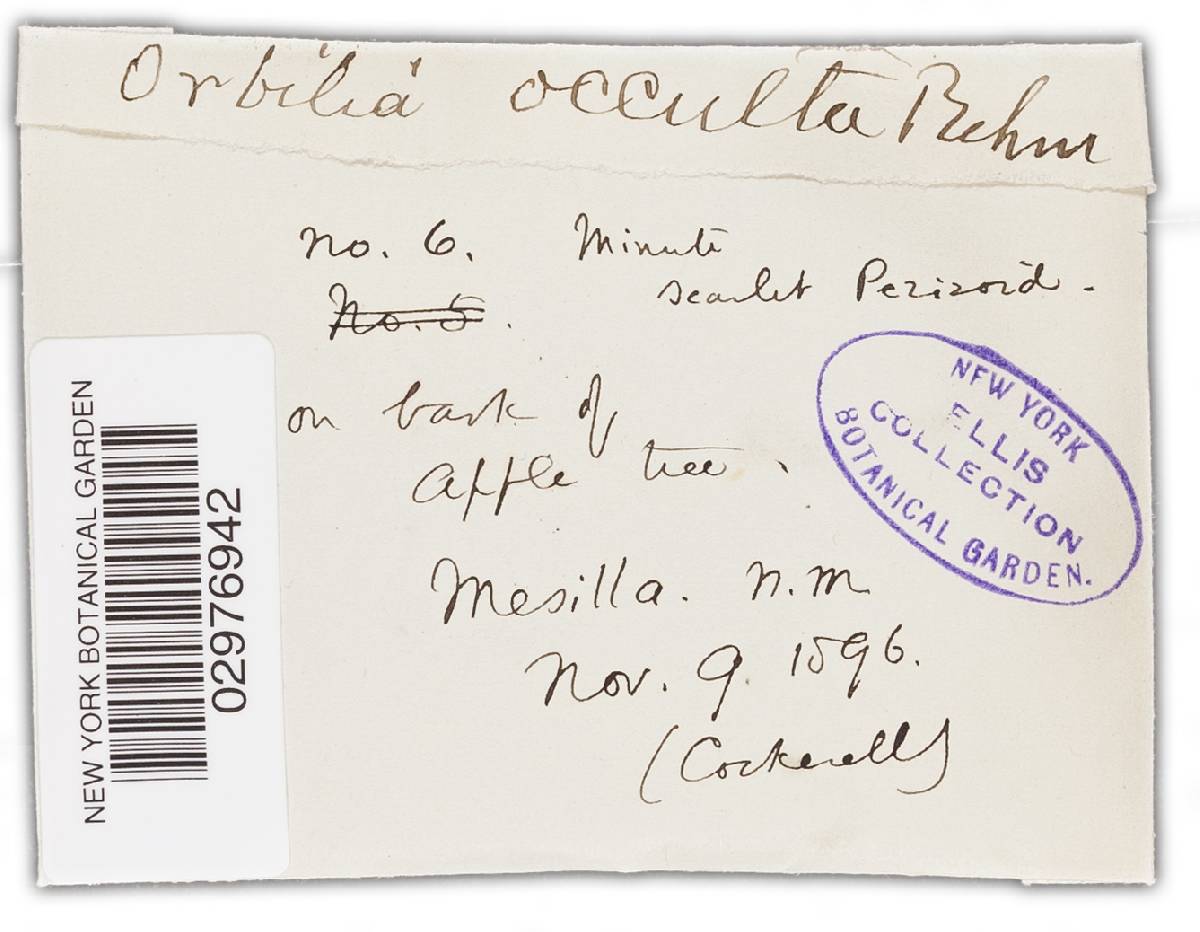 Orbilia occulta Rehm
No. 6. Minute
scarlet Pezizoid -
No. 5.
on bark of
apple tree.
Mesilla. N.M
Nov. 9. 1896.
(Cockerell)
NEW YORK
ELLIS
COLLECTION
BOTANICAL GARDEN.
NEW YORK BOTANICAL GARDEN
02976942